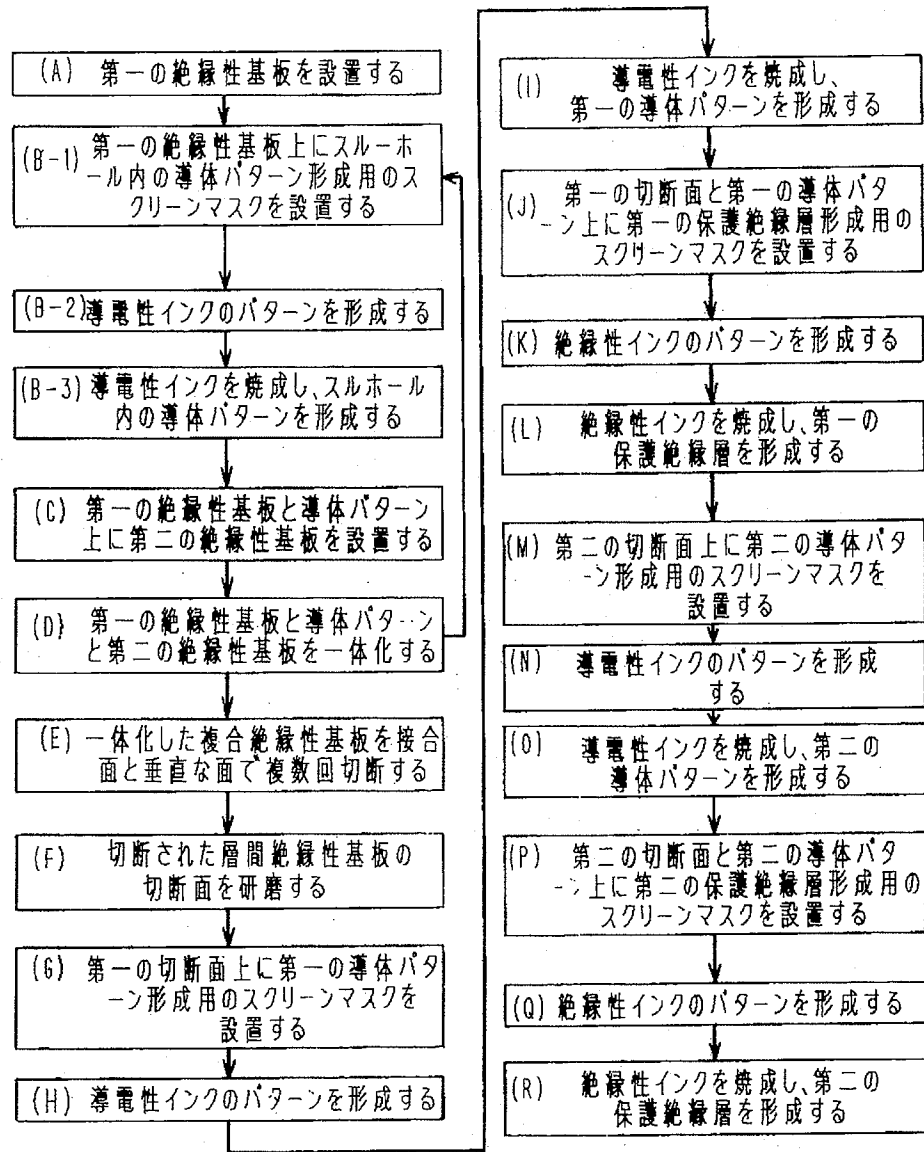 (A) 第一の絶縁性基板を設置する
(B-1) 第一の絶縁性基板上にスルーホ
ール内の導体パターン形成用のス
クリーンマスクを設置する
(B-2) 導電性インクのパターンを形成する
(B-3) 導電性インクを焼成し、スルホール
内の導体パターンを形成する
(C) 第一の絶縁性基板と導体パターン
上に第二の絶縁性基板を設置する
(D) 第一の絶縁性基板と導体パターン
と第二の絶縁性基板を一体化する
(E) 一体化した複合絶縁性基板を接合
面と垂直な面で複数回切断する
(F) 切断された層間絶縁性基板の
切断面を研磨する
(G) 第一の切断面上に第一の導体パタ
ーン形成用のスクリーンマスクを
設置する
(H) 導電性インクのパターンを形成する
(I) 導電性インクを焼成し、
第一の導体パターンを形成する
(J) 第一の切断面と第一の導体パタ
ーン上に第一の保護絶縁層形成用の
スクリーンマスクを設置する
(K) 絶縁性インクのパターンを形成する
(L) 絶縁性インクを焼成し、第一の
保護絶縁層を形成する
(M) 第二の切断面上に第二の導体パタ
ーン形成用のスクリーンマスクを
設置する
(N) 導電性インクのパターンを形成
する
(O) 導電性インクを焼成し、第二の
導体パターンを形成する
(P) 第二の切断面と第二の導体パタ
ーン上に第二の保護絶縁層形成用の
スクリーンマスクを設置する
(Q) 絶縁性インクのパターンを形成する
(R) 絶縁性インクを焼成し、第二の
保護絶縁層を形成する